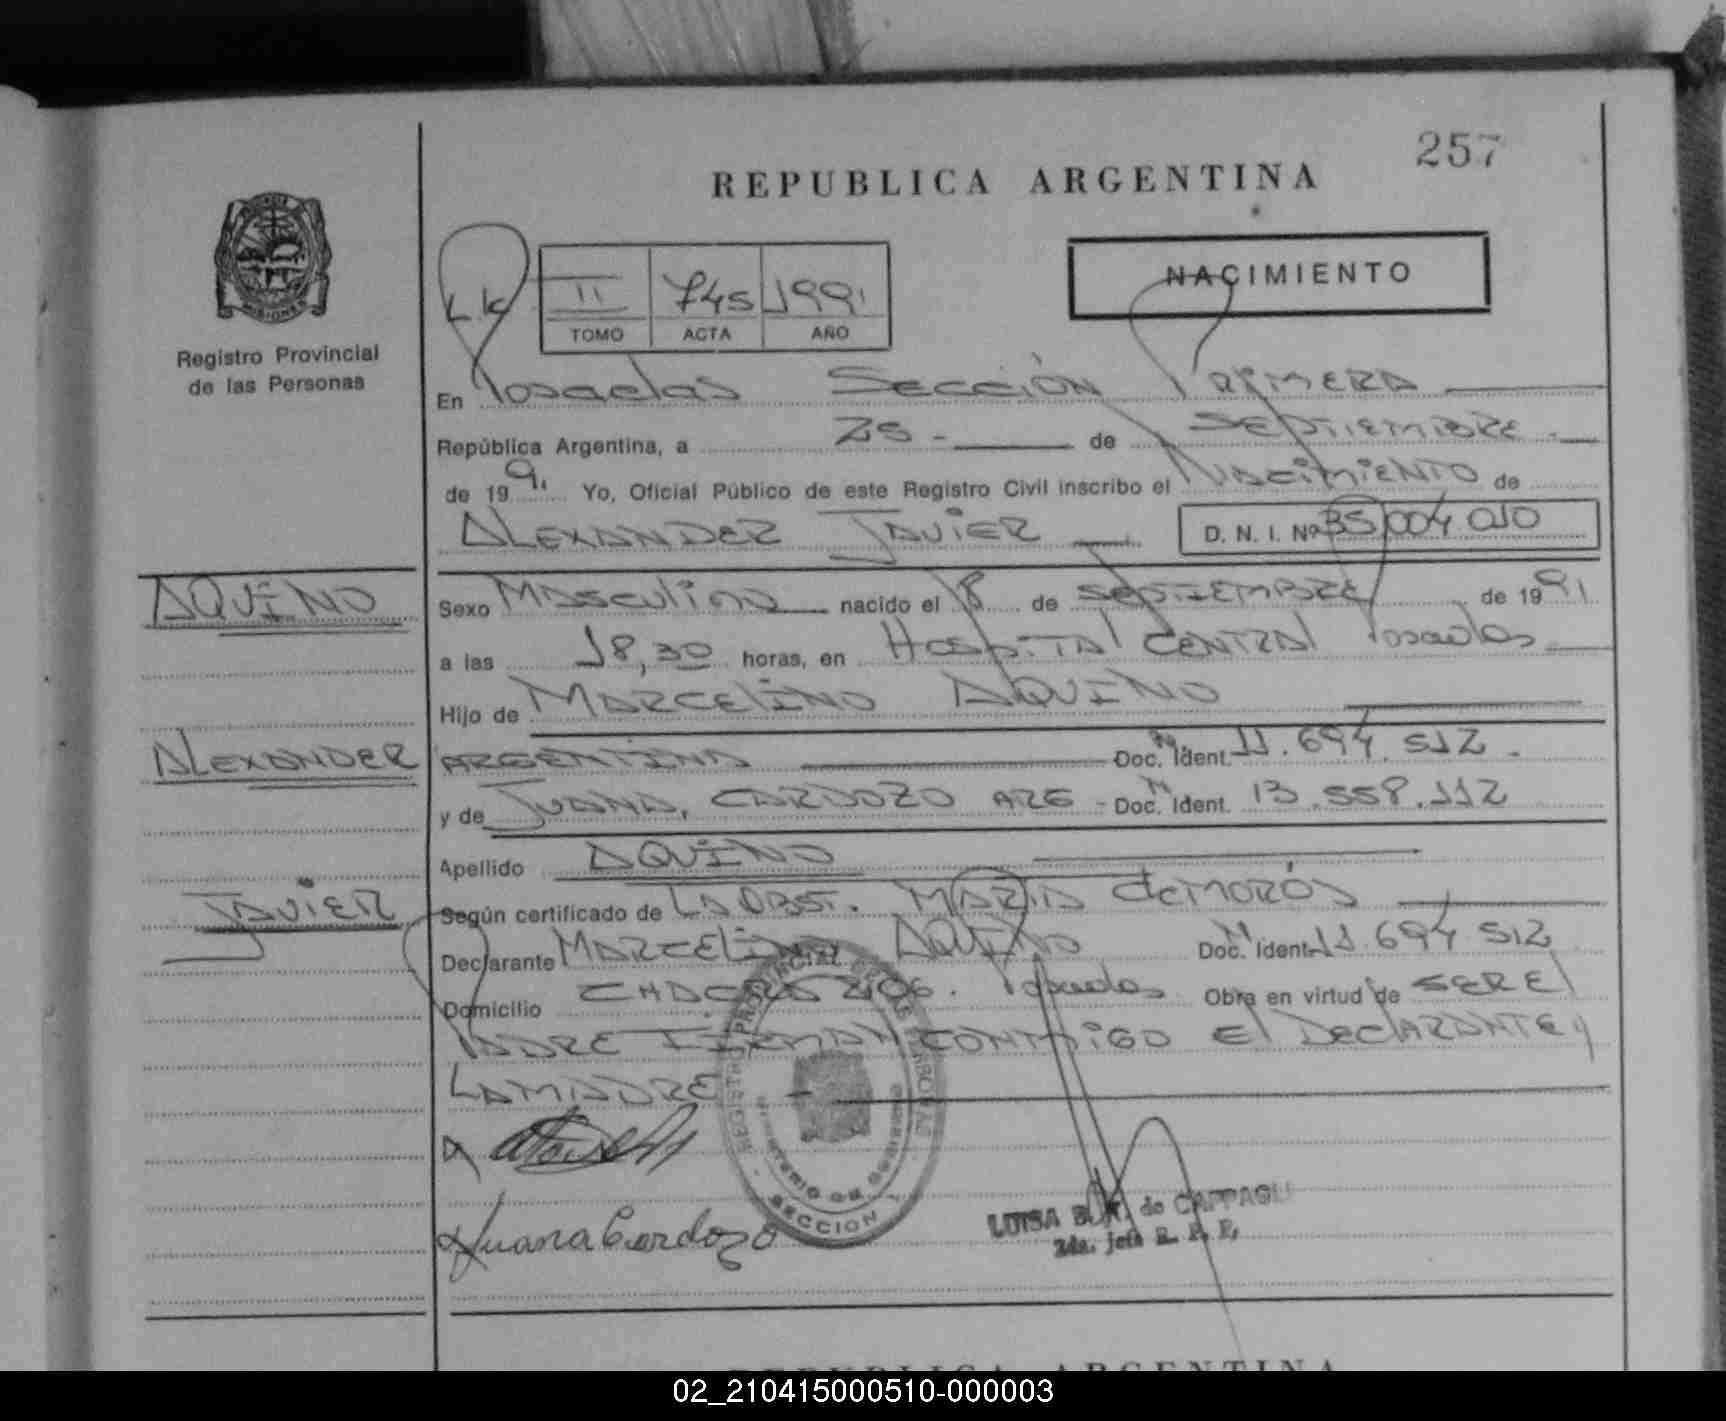 257
REPUBLICA ARGENTINA
NACIMIENTO
PROVINCIA
MISIONES
Registro Provincial
de las Personas
II 745 1991
TOMO ACTA AÑO
En Posadas Sección Primera
República Argentina, a 25 - de Septiembre -
de 1991 Yo, Oficial Público de este Registro Civil inscribo el Nacimiento de
ALEXANDER JAVIER D. N. I. Nº 35.004.010
AQUINO
Sexo Masculino nacido el 18 de septiembre de 1991
a las 18,30 horas, en Hospital Central Posadas
Hijo de Marcelino AQUINO
ALEXANDER
Argentino Doc. Ident. 11.694.512.
y de Juana, Cardozo Arg - Doc. Ident. 13.558.112
Apellido AQUINO
JAVIER
Según certificado de La Obst. Maria
Declarante Marcelino Aquino Doc. Ident. 11.694.512
Domicilio Chacra 206. Posadas Obra en virtud de ser el
Padre Firman conmigo el Declarante y
La Madre -
Juana Cardozo
SECCION 1
LUISA B. de CAPPAGLI
2da. jefa R. P. P.
REPUBLICA ARGENTINA
02_210415000510-000003